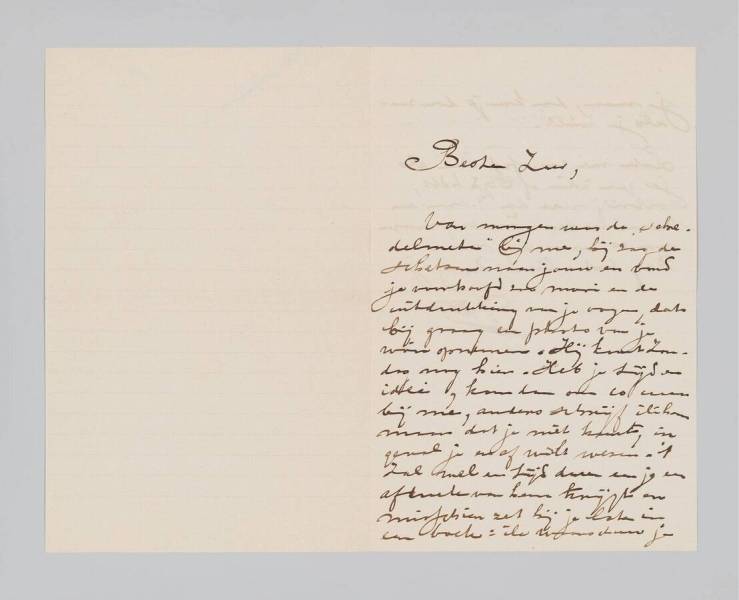 Beste Zus,
Van morgen was de schedelmeter bij me, hij zag de
schetsen naar jouw en vond
je voorhoofd zoo mooi en de
uitdrukking van je oogen, dat
hij graag een photo van je
wou opnemen. Hij komt Zondag
nog hier. Heb je tijd en
idee, kom dan om 10 uur
bij me, anders schrijf ik hem
maar dat je niet komt, in
geval je er af wilt wezen. 't
Zal wel een tijd duren eer je een
afdruk van hem krijgt en
misschien zet hij je later in
een boek = ik waarschuw je